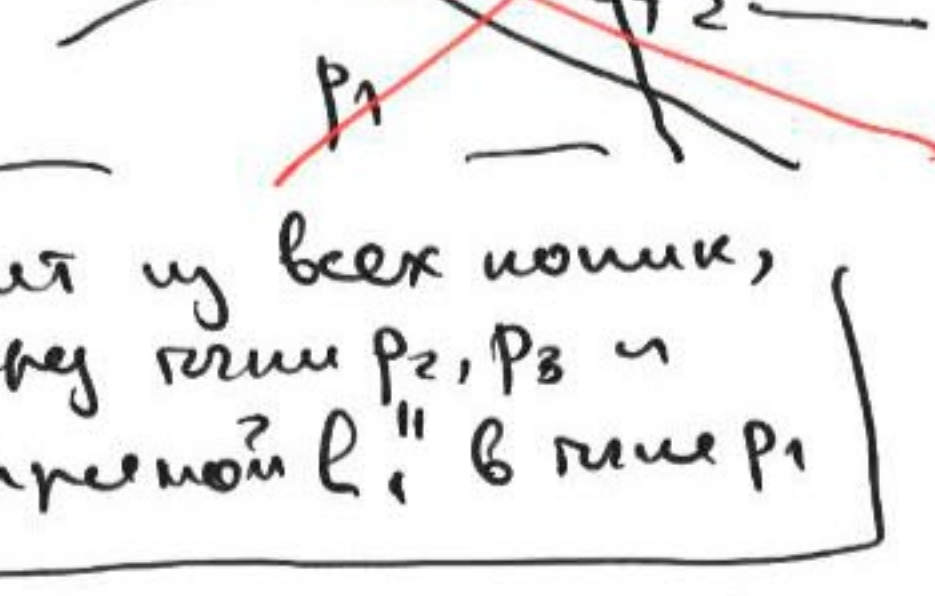 p₁
2
ит из всех коник,
рез точки p₂, p₃ и
прямой l₁" в точке p₁